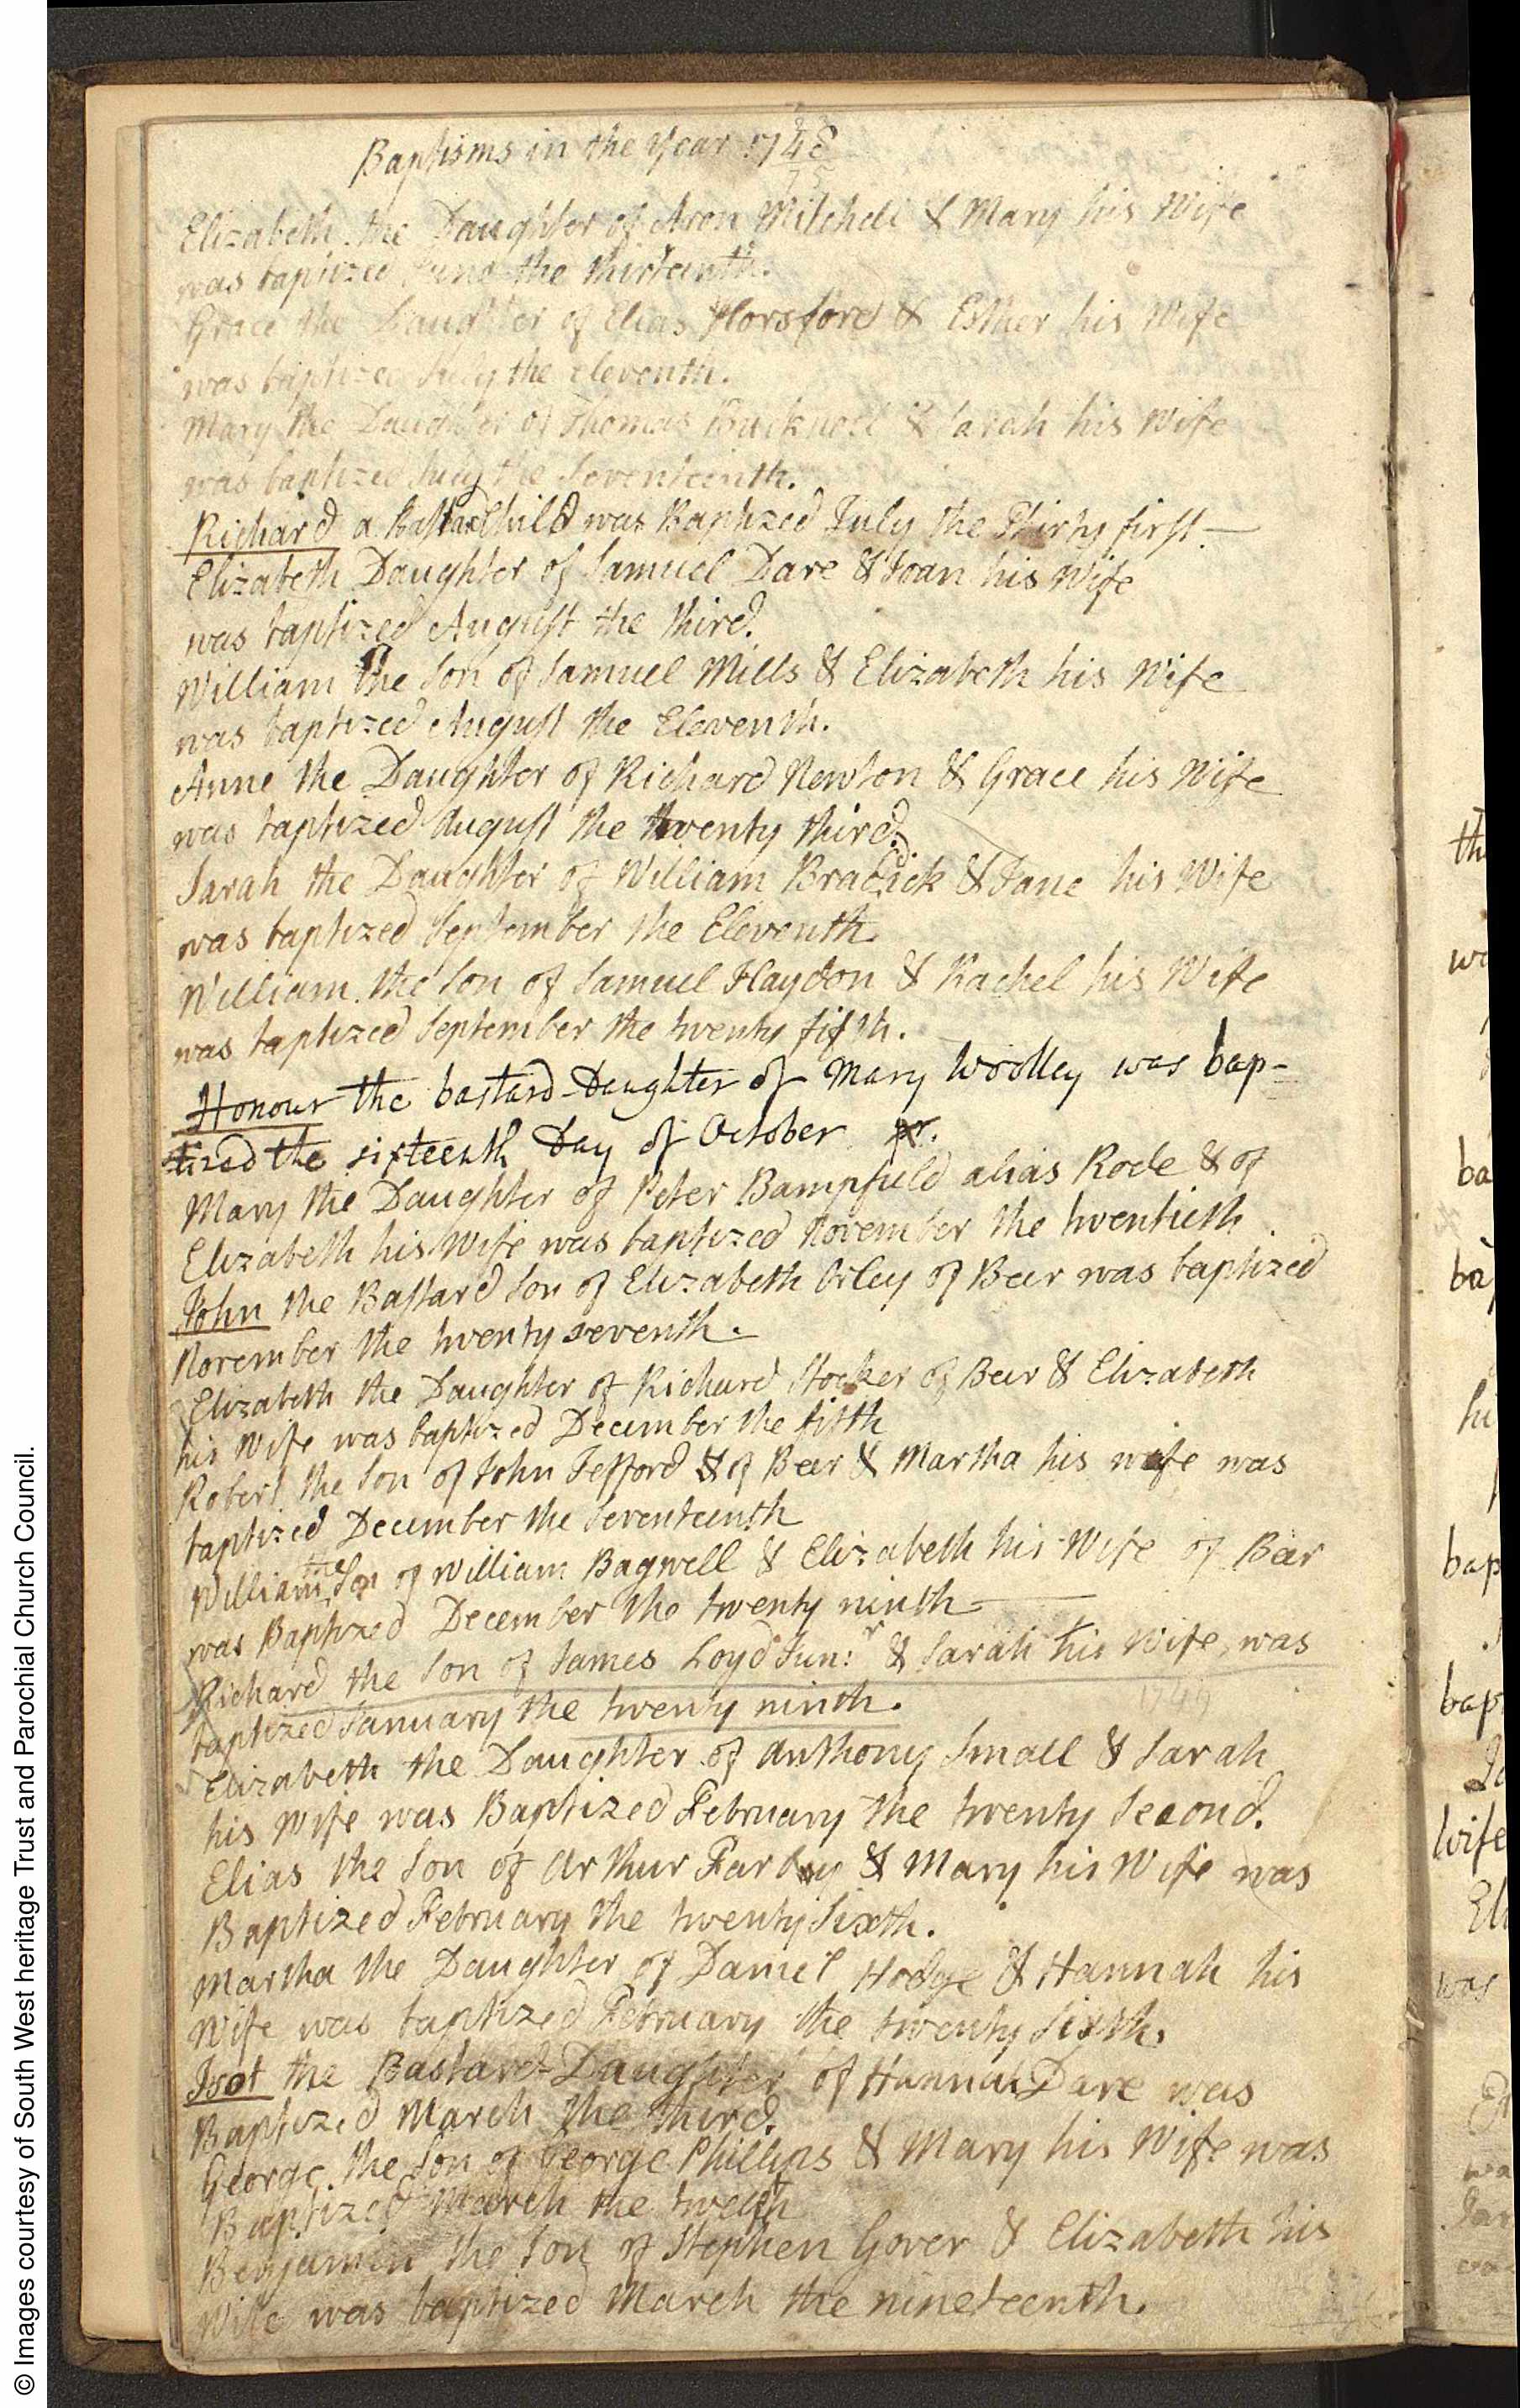 Baptisms in the Year 1748
Elizabeth the Daughter of Aron Mitchell & Mary his Wife
was baptized June the thirteenth.
Grace the Daughter of Elias Horsford & Esther his Wife
was baptized July the eleventh.
Mary the Daughter of Thomas Bucknell & Sarah his Wife
was baptized July the Seventeenth.
Richard a Bastard Child was Baptized July the Thirty first.
Elizabeth Daughter of Samuel Dare & Joan his Wife
was baptized August the third.
William the Son of Samuel Mills & Elizabeth his Wife
was baptized August the Eleventh.
Anne the Daughter of Richard Newton & Grace his Wife
was baptized August the twenty third.
Sarah the Daughter of William Bradick & Jane his Wife
was baptized September the Eleventh.
William the Son of Samuel Haydon & Rachel his Wife
was baptized September the twenty fifth.
Honour the bastard-Daughter of Mary Woolley was bap-
tized the sixteenth Day of October pr.
Mary the Daughter of Peter Bampfield alias Rode & of
Elizabeth his Wife was baptized November the twentieth
John the Bastard Son of Elizabeth Orley of Beer was baptized
November the twenty seventh.
Elizabeth the Daughter of Richard Stocker of Beer & Elizabeth
his Wife was baptized December the fifth
Robert the Son of John Jefford & of Beer & Martha his wife was
baptized December the Seventeenth
William the Son of William Bagwell & Elizabeth his Wife of Bear
was Baptized December the twenty ninth
Richard the Son of James Loyd Jun:r & Sarah his Wife, was
baptized January the twenty ninth. 1749
Elizabeth the Daughter of Anthony Small & Sarah
his Wife was Baptized February the twenty Second.
Elias the Son of Arthur & Mary his Wife was
Baptized February the twenty Sixth.
Martha the Daughter of Daniel Hodge & Hannah his
Wife was baptized February the twenty Sixth.
Isot the Bastard Daughter of Hannah Dare was
Baptized March the third.
George the Son of George Phillips & Mary his Wife was
Baptized March the twelfth
Benjamin the Son of Stephen Gover & Elizabeth his
Wife was baptized March the nineteenth.
© Images courtesy of South West heritage Trust and Parochial Church Council.